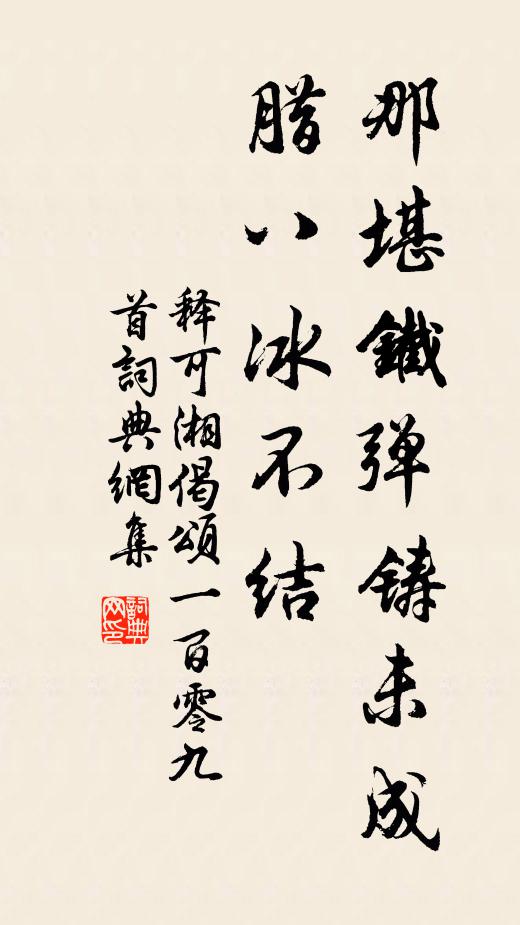 那堪鐵弹鑄未成
腊八冰不结
释可湘偈頌一百零九
首詞典網集
詞典网印